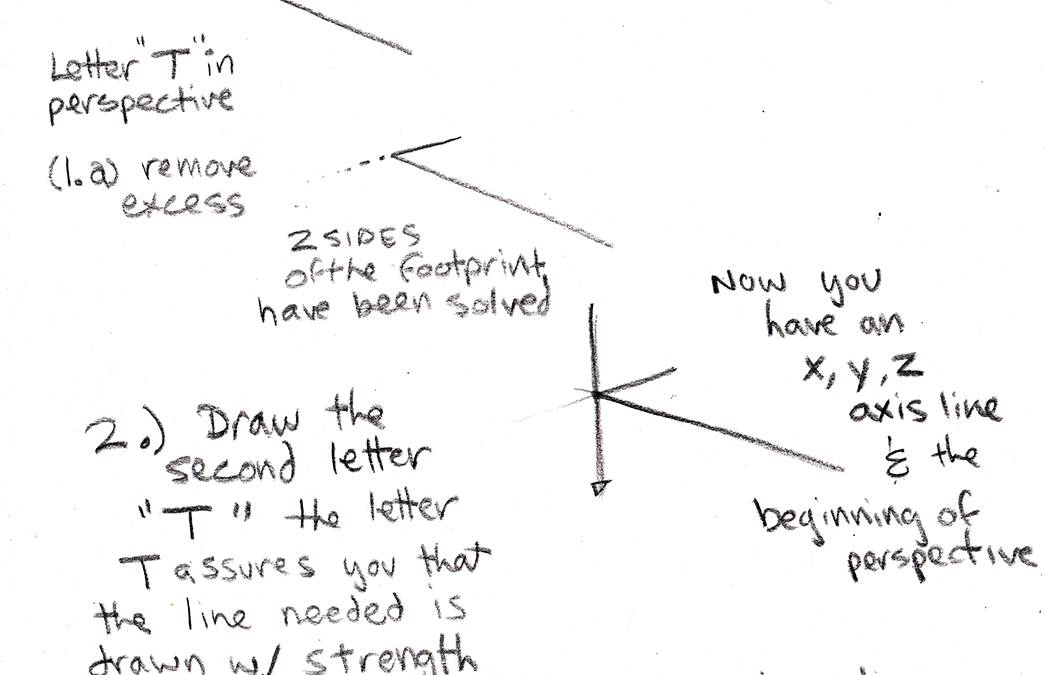 Letter "T" in
perspective
(1.a) remove
excess
2 SIDES
of the footprint,
have been solved
Now you
have an
x, y, z
axis line
& the
beginning of
perspective
2.) Draw the
second letter
"T" the letter
T assures you that
the line needed is
drawn w/ strength